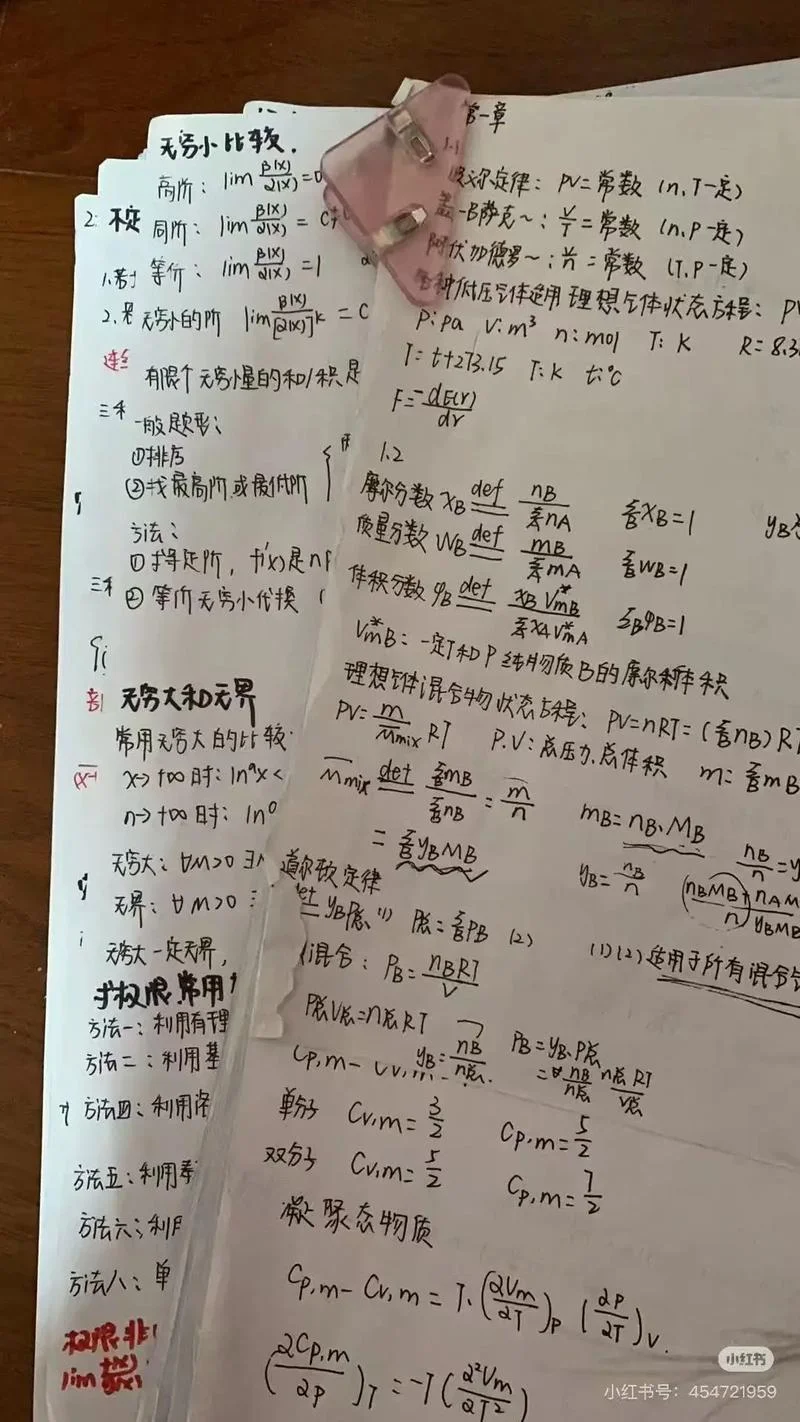 无穷小比较.
高阶: lim β(x)/α(x) = 0
2. 不定
同阶: lim β(x)/α(x) = C
1.若
等价: lim β(x)/α(x) = 1
2.
无穷小的阶 lim β(x)/[α(x)]^k = C
有限个无穷小量的和/积是
一般题形:
①排序
②找最高阶或最低阶
方法:
①求导定阶, f'(x)是n阶
② 等价无穷小代换
无穷大和无界
常用无穷大的比较
x→+∞时: ln^α x <
n→+∞时: ln^α
无穷大: ∀M>0 ∃
无界: ∀M>0 ∃
无穷大一定无界,
求极限常用
方法一: 利用有理
方法二: 利用基
方法四: 利用
方法五: 利用
方法六: 利用
方法八: 单
权限非
lim
第一章
1.1
定律: PV=常数 (n,T一定)
盖-吕萨克~: V/T = 常数 (n,P一定)
阿伏加德罗~: V/n = 常数 (T,P一定)
各种低压气体适用 理想气体状态方程: PV
P: pa V: m³ n: mol T: K R=8.3
T=t+273.15 T: K t: ℃
F=-dE(r)/dr
1.2
摩尔分数 xB def nB/ΣnA ΣxB=1 yB
质量分数 WB def mB/ΣmA ΣWB=1
体积分数 φB def xB V*mB/ΣxA V*mA ΣBφB=1
V*mB: 一定T和P纯物质B的摩尔体积
理想气体混合物状态方程: PV=nRT=(ΣnB)RT
PV=m/M̄mix RT P.V: 总压力.总体积 m=ΣmB
M̄mix def ΣmB/ΣnB = m/n mB=nB·MB nB/n=y
=ΣyBMB yB=nB/n
道尔顿定律
yBP总 (1) P总=ΣPB (2) (1)(2)适用于所有混合气
混合: PB=nBRT/V
P总V总=n总RT
yB=nB/n总 PB=yB·P总
Cp,m-Cv,m = nB/n总 n总RT/V总
单分子 Cv,m=3/2 Cp,m=5/2
双分子 Cv,m=5/2 Cp,m=7/2
凝聚态物质
Cp,m-Cv,m=T·(∂Vm/∂T)P (∂P/∂T)V.
(∂Cp,m/∂P)T=-T(∂²Vm/∂T²)
小红书
小红书号: 454721959